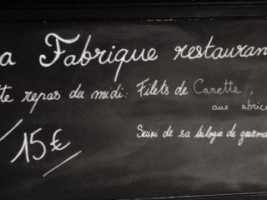 a Fabrique restauran
te repas du midi: Filets de Canette,
aux abric
Suivi de sa trilogie de gourma
15€